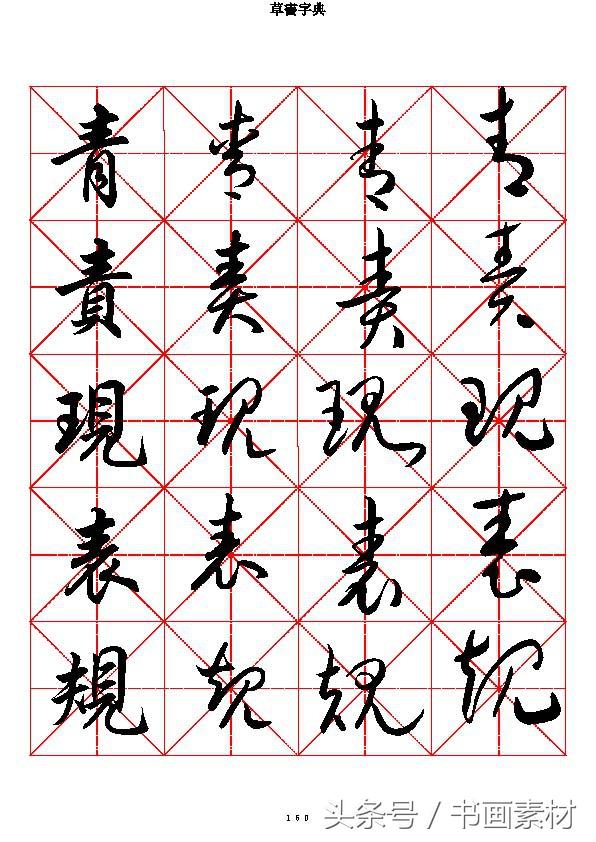 草書字典
青 青 青 青
責 責 責 責
現 現 現 現
表 表 表 表
規 規 規 規
160
头条号 / 书画素材